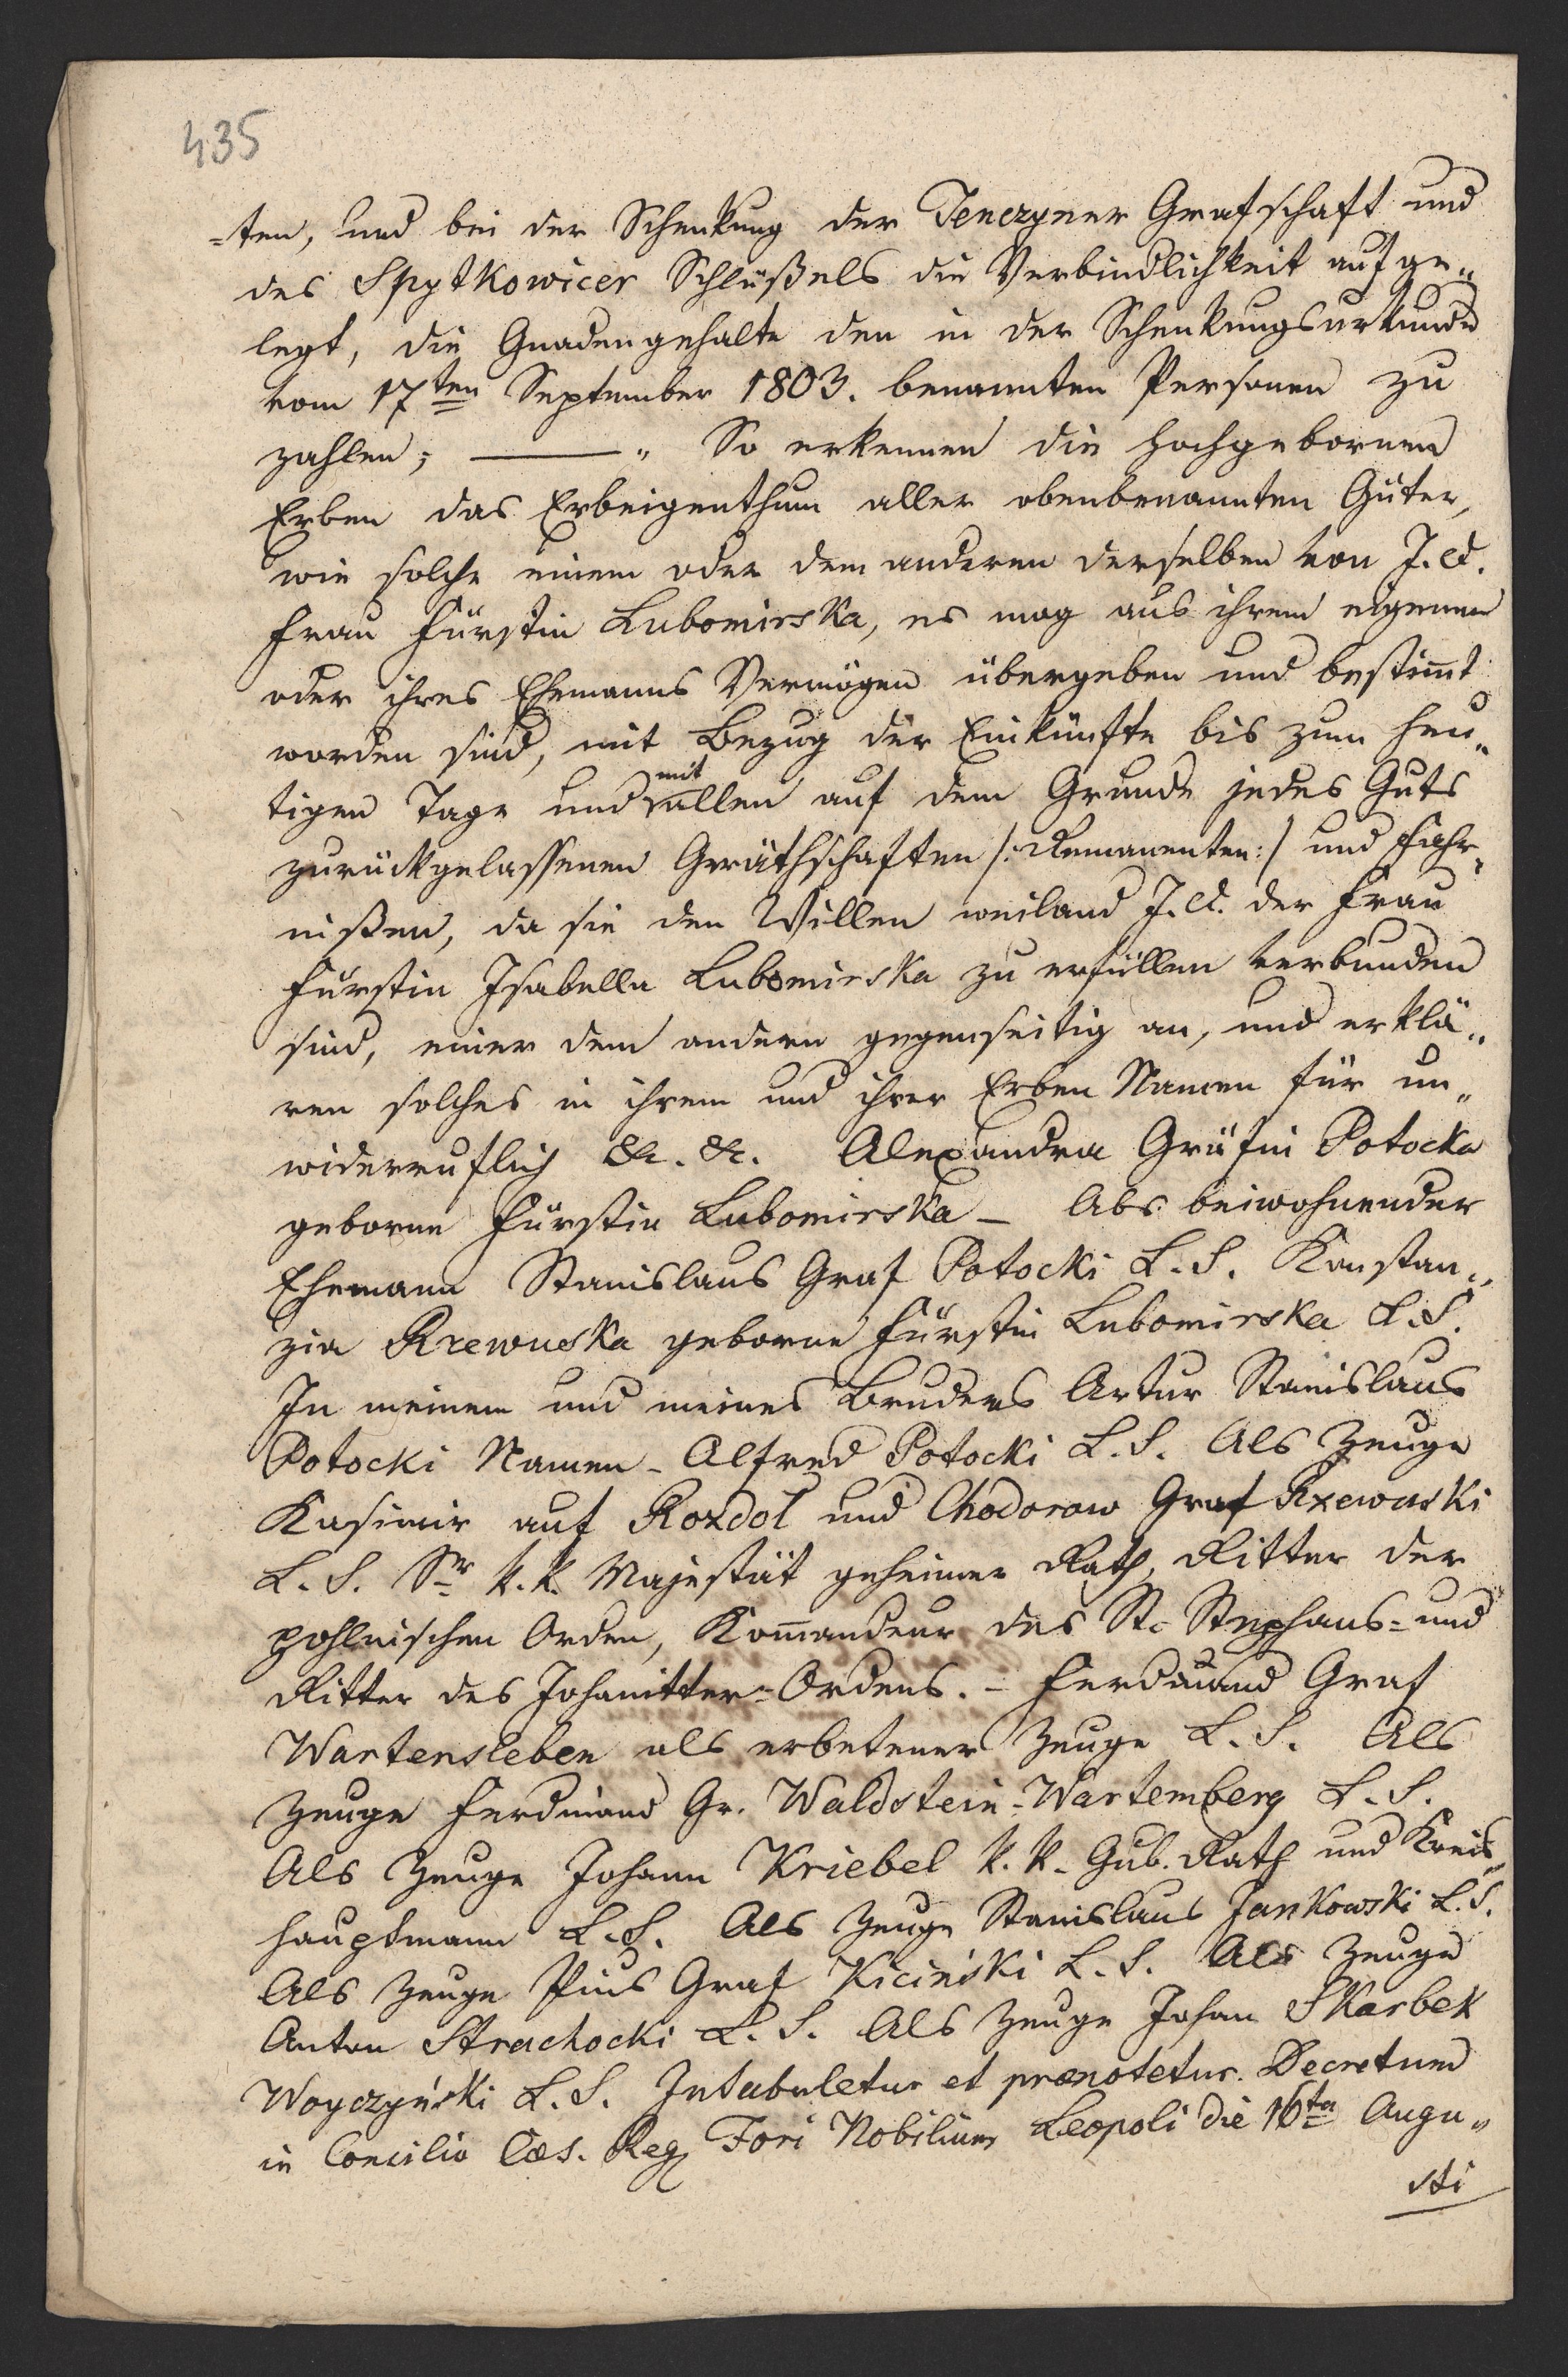 435
=ten, und bei der Schenkung der Tenczyner Grafschaft und
des Spytkowicer Schlüßels die Verbindlichkeit aufge„
legt, die Gnadengehalte den in der Schenkungsurkunde
vom 17ten September 1803. benannten Personen zu
zahlen; ——— „ So erkennen die hochgebornen
Erben das Erbeigenthum aller obenbenannten Güter,
wie solche einem oder dem anderen derselben von J. D.
Frau Fürstin Lubomirska, es mag aus ihrem eigenen
oder ihres Ehemanns Vermögen übergeben und bestim̄t
worden sind, mit Bezug der Einkünfte bis zum heu„
tigen Tage und mit allen auf dem Grunde jedes Guts
zurückgelassenen Geräthschaften /: Remanenten :/ und Fahr„
nißen, da sie den Willen weiland J. D. der Frau
Fürstin Isabella Lubomirska zu erfüllen verbunden
sind, einer dem andern gegenseitig an, und erklä„
ren solches in ihrem und ihrer Erben Namen für un„
widerruflich &c. &c. Alexandra Gräfin Potocka
geborne Fürstin Lubomirska – Als beiwohnender
Ehemann Stanislaus Graf Potocki L. S. Konstan„
zia Rzewuska geborne Fürstin Lubomirska L. S.
In meinem und meines Bruders Artur Stanislaus
Potocki Namen – Alfred Potocki L. S. Als Zeuge
Kasimir auf Rozdol und Chodorow Graf Rzewuski
L. S. Sr k. k. Majestät geheimer Rath, Ritter der
pohlnischen Orden, Kom̄andeur des St. Stephans= und
Ritter des Johanitter=Ordens. – Ferdinand Graf
Wartensleben als erbetener Zeuge L. S. Als
Zeuge Ferdinand Gr. Waldstein=Wartemberg L. S.
Als Zeuge Johann Kriebel k. k. Gub. Rath und Kreis„
hauptmann L. S. Als Zeuge Stanislaus Jankowski L. S.
Als Zeuge Pius Graf Kiciński L. S. Als Zeuge
Anton Strachocki L. S. Als Zeuge Johan Skarbek
Woyczyński L. S. Intabuletur et prænotetur. Decretum
in Concilio Cæs. Reg. Fori Nobilium Leopoli die 16ta Augu„
sti